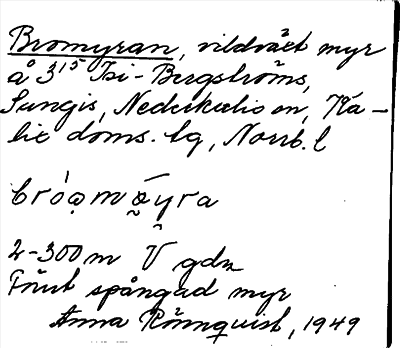 Bromyran, vildväxt myr
å 3¹⁵ Isi-Bergströms,
Sungis, Nederkalix sn, Ka-
lix doms. lg, Norrb. l
bróo̯mÿra
2-300 m V gdn
Förut spångad myr
Anna Rönnquist, 1949